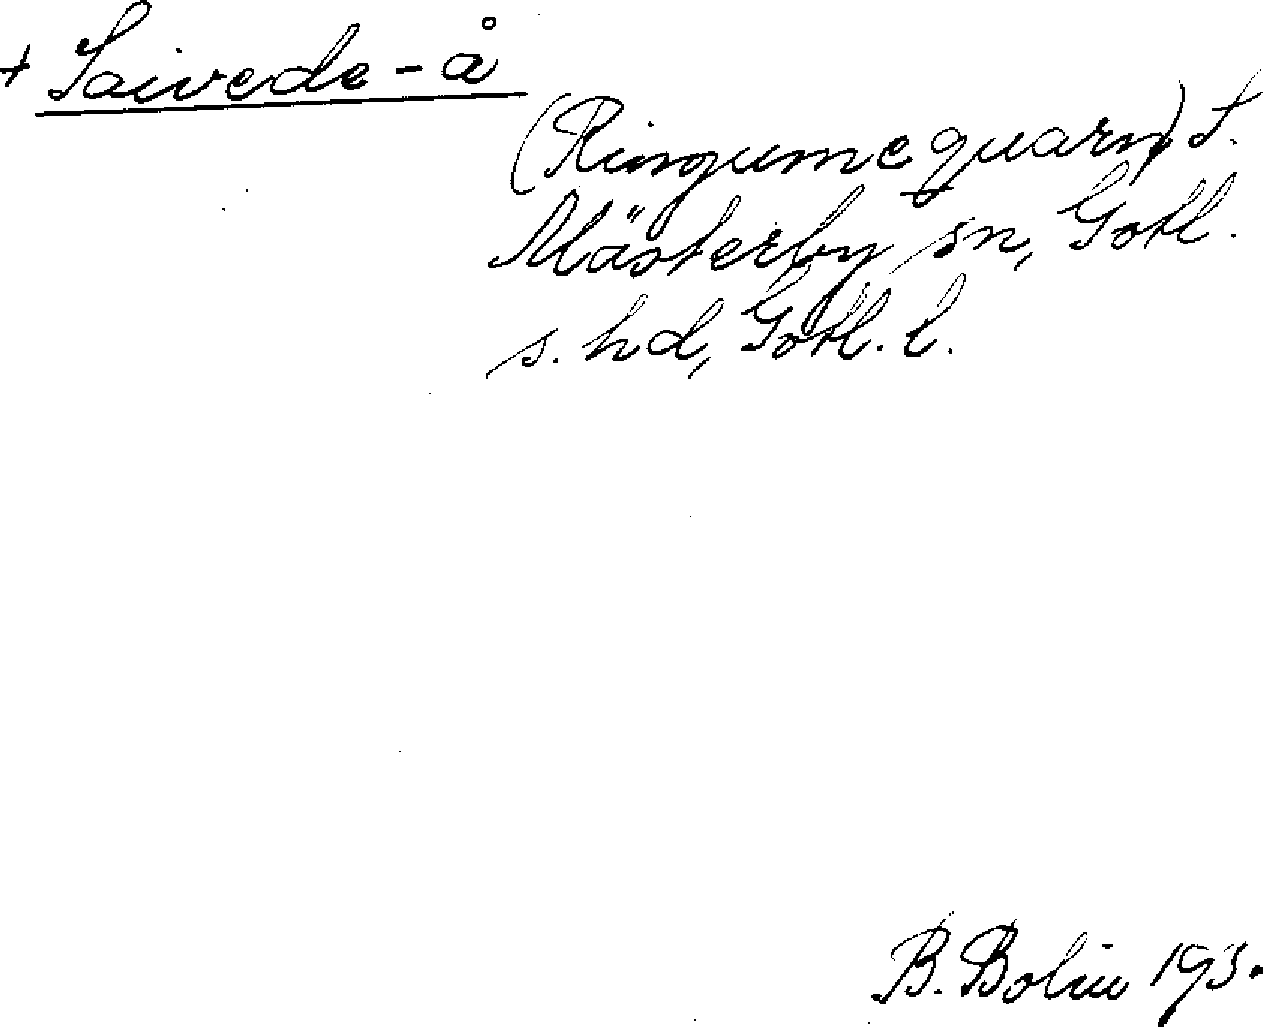 + Saivede-å
(Ringume quarn) f.
Mästerby sn, Gotl.
s. hd, Gotl. l.
B. Bolin 193.